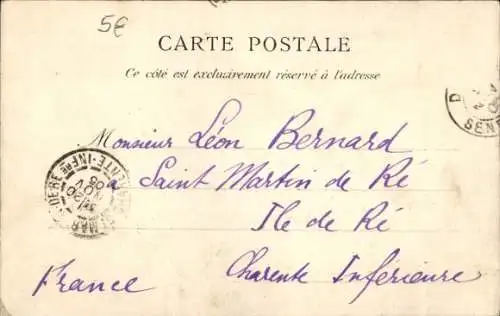 5€
CARTE POSTALE
Ce côté est exclusivement réservé à l'adresse
Monsieur Léon Bernard
a Saint Martin de Ré
Ile de Ré
Charente Inférieure
France